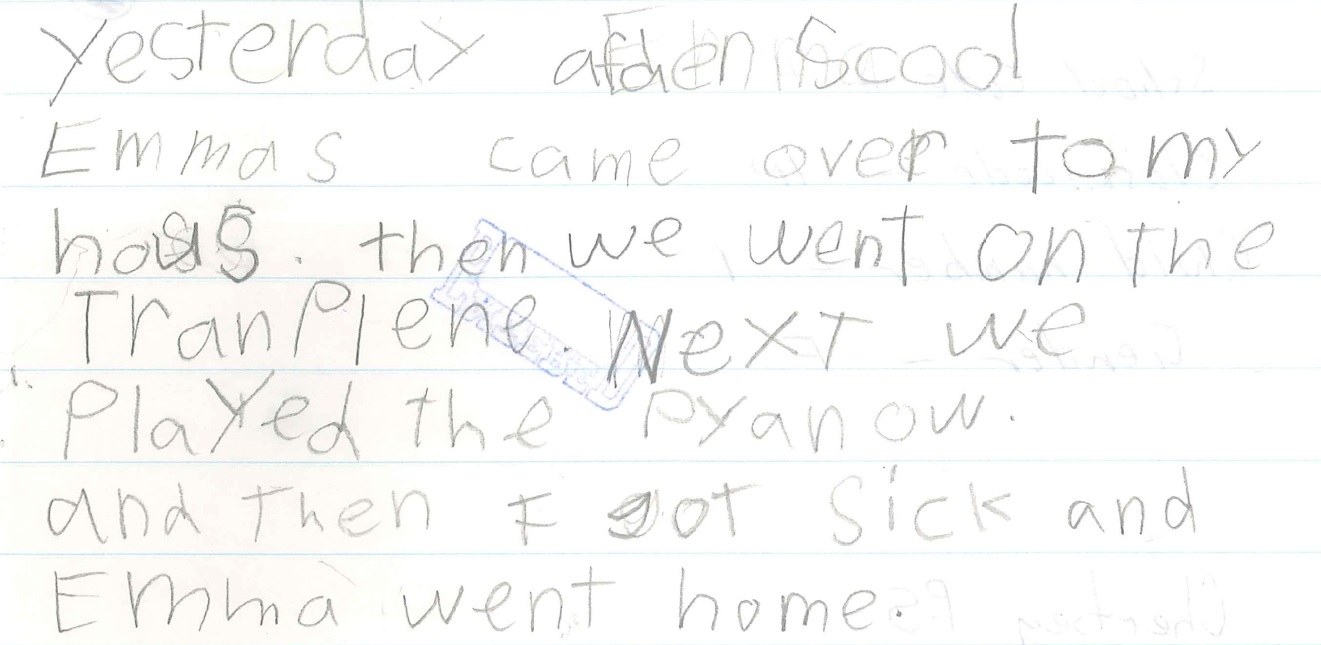 Yesterday afden Scool
Emmas came over to my
hous. then we went on the
TranPlene. Next we
Played the Pyanow.
and Then I got Sick and
Emma went home.